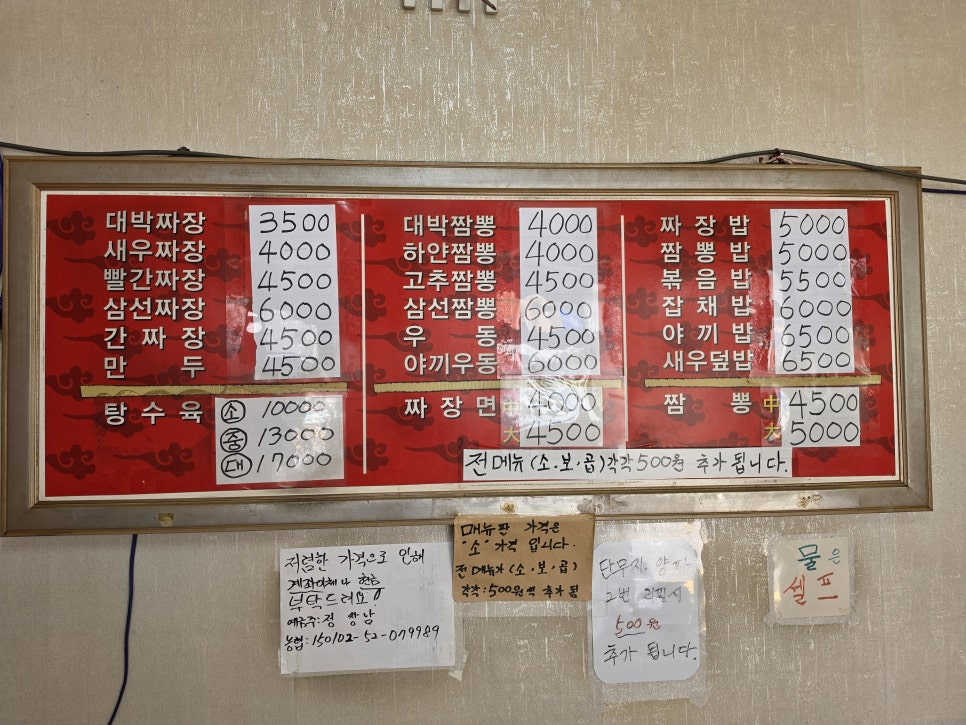 대박짜장 3500
새우짜장 4000
빨간짜장 4500
삼선짜장 6000
간짜장 4500
만두 4500
탕수육 소 10000
중 13000
대 17000
대박짬뽕 4000
하얀짬뽕 4000
고추짬뽕 4500
삼선짬뽕 6000
우동 4500
야끼우동 6000
짜장면 中 4000
大 4500
짜장밥 5000
짬뽕밥 5000
볶음밥 5500
잡채밥 6000
야끼밥 6500
새우덮밥 6500
짬뽕 中 4500
大 5000
전메뉴(소·보·곱)각각500원 추가됩니다.
저렴한 가격으로 인해
계좌이체나 현금
부탁드려요!
예금주:정창남
농협:150102-52-079989
메뉴판 가격은
"소" 가격 입니다.
전메뉴가(소·보·곱)
각각:500원씩 추가 됨
단무지, 양파
2번 리필시
500원
추가 됩니다.
물은
셀프